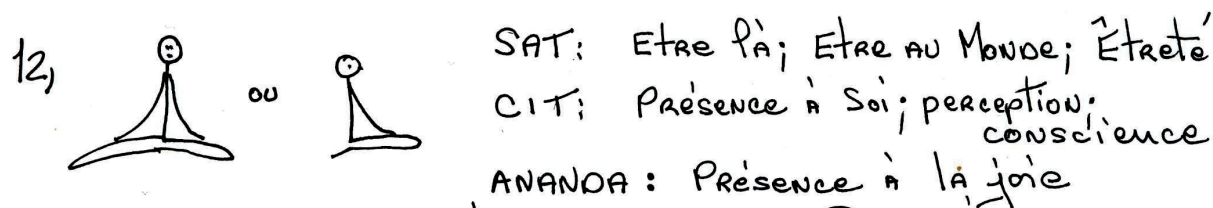 12,
ou
SAT: Etre là; Etre au Monde; Êtreté
CIT: Présence à Soi; perception;
conscience
ANANDA: Présence à là joie